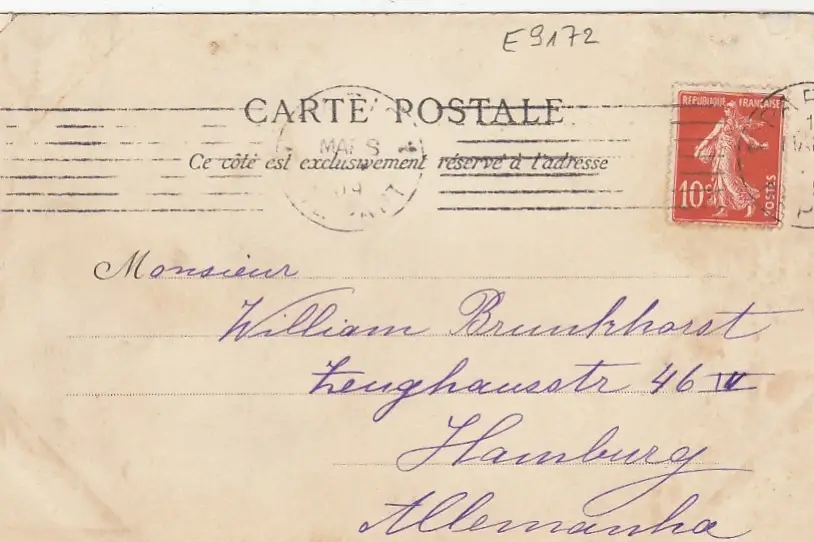 E9172
CARTE POSTALE
Ce côté est exclusivement réservé à l'adresse
REPUBLIQUE FRANÇAISE
10c
POSTES
MARS
09
Monsieur
William Brunkhorst
Zeughausstr 46 IV
Hamburg
Allemanha